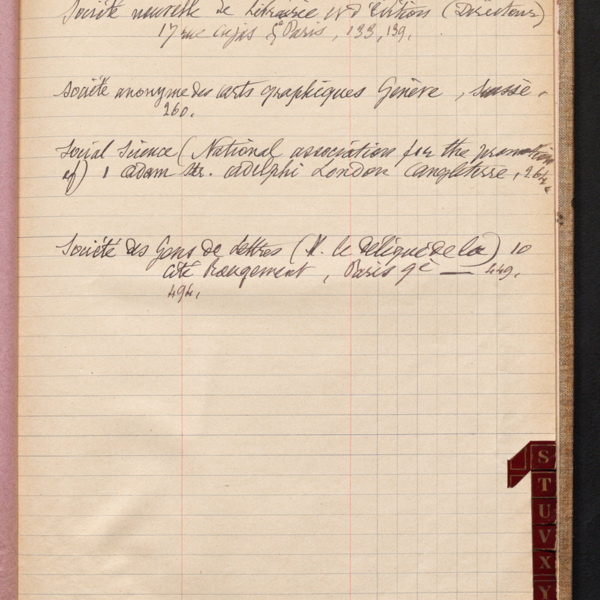 Société nouvelle de Librairie et d'Edition (Directeur)
17 rue Cujas Paris, 133, 139.
Société anonyme des arts graphiques Genève, Suisse.
260.
Social Science (National association for the promotion
of) 1 adam str. adelphi London angleterre, 264.
Société des Gens de Lettres (M. le délégué de la) 10
cité Rougemont, Paris 9e — 449.
494.
S
T
U
V
X
Y